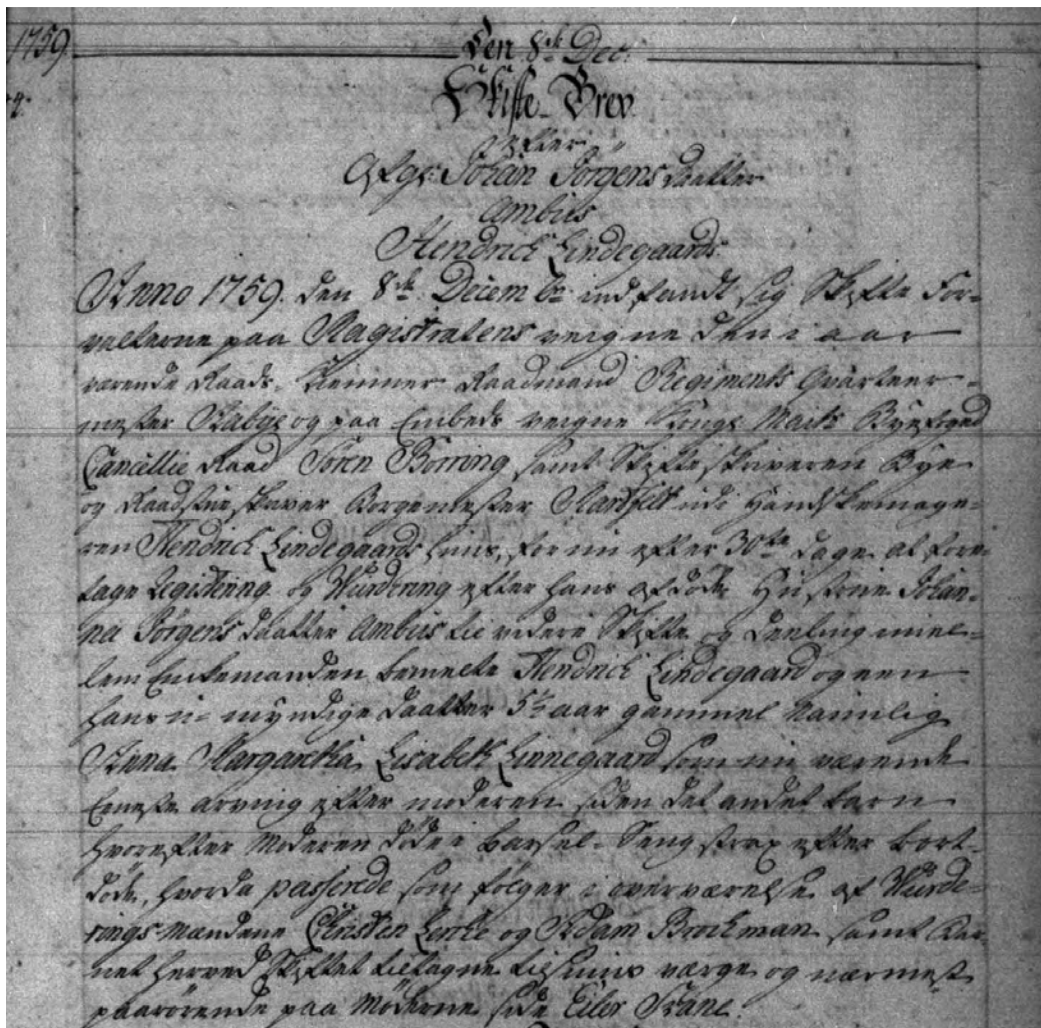 1759.
Den 8de Dec:
Skifte-Brev
efter
Afgs: Johan Jörgens daatter
Ambus
Hendrich Lindegaards.
Anno 1759. den 8de Decembr: indfandt sig Skifte For-
valterne paa Magistratens veigne den i aar
værende Raads-Kemner Raadmand Regiments Qvarteer-
mester Rabÿe og paa Embeds veigne Kongl Maits Byefoged
Cancellie Raad Sören Borring, samt Skifteskriveren Bye
og Raadstueskriver Borgemester udi Handskemage-
ren Hendrich Lindegaards huus, for nu efter 30te dage at fore-
tage Registering og Wurdering efter hans afdöde Hustrue Johan-
na Jörgens daatter Ambus til videre Skifte og deeling miel-
lem Enkemanden bemelte Hendrich Lindegaard og een
hans u-myndige daatter 5½ aar gammel Naunlig
Anna Margaretha Lisabeth Linnegaard som nu værende
Eeneste arving efter moderen siden det andet barn
hvorefter Moderen döde i barsel-Seng strax efter bort-
döde, hvorda passerede som fölger i overværelse af Wurde-
rings mændene Christen Lercke og Adam Brockman samt Bar-
net herved Skiftet tiltagne værge og nærmest
paarörende paa Möderne side Eiler Trane.